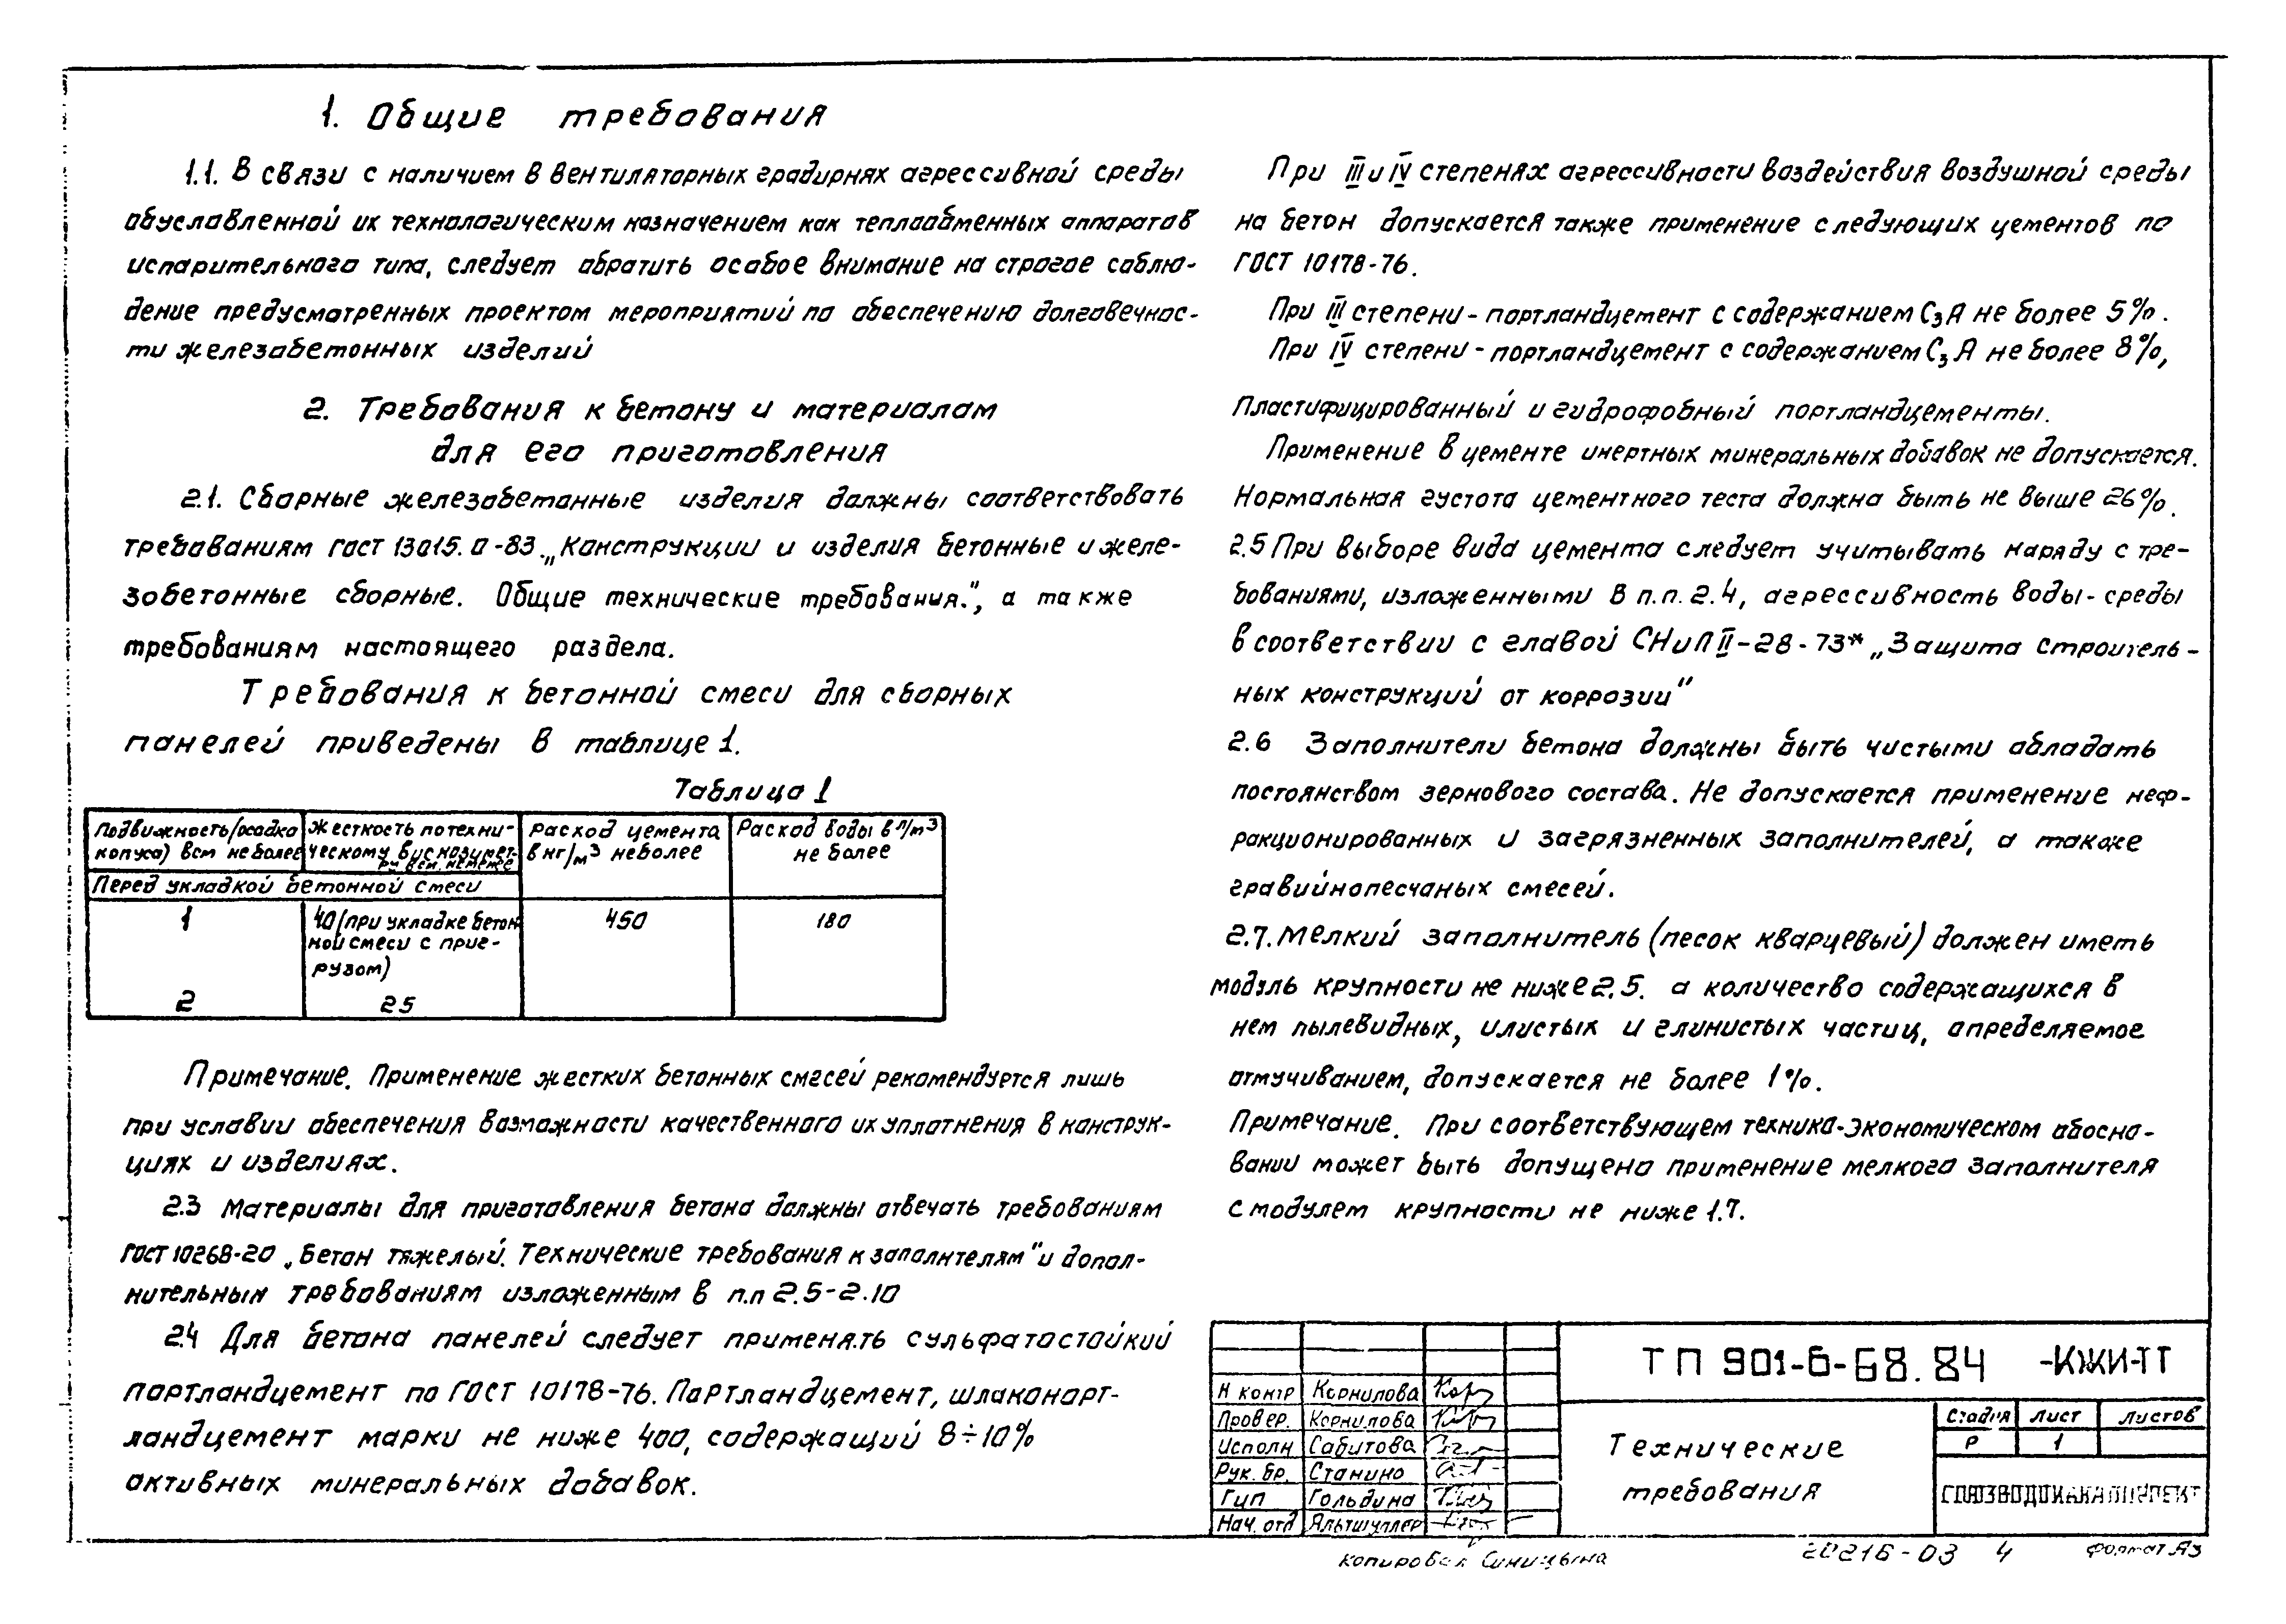 1. Общие требования
1.1. В связи с наличием в вентиляторных градирнях агрессивной среды
обуславленной их технологическим назначением как теплообменных аппаратов
испарительного типа, следует обратить особое внимание на строгое соблю-
дение предусмотренных проектом мероприятий по обеспечению долговечнос-
ти железобетонных изделий
2. Требования к бетону и материалам
для его приготовления
2.1. Сборные железобетонные изделия должны соответствовать
требованиям гост 13015.0-83 „Конструкции и изделия бетонные и желе-
зобетонные сборные. Общие технические требования.", а также
требованиям настоящего раздела.
Требования к бетонной смеси для сборных
панелей приведены в таблице 1.
Таблица 1
Подвижность/осадка
конуса) всм не более
Жесткость по техни-
ческому вискозимет-
ру всм. не менее
Расход цемента
в кг/м³ не более
Расход воды в л/м³
не более
Перед укладкой бетонной смеси
1
40(при укладке бетон
ной смеси с приг-
рузом)
450
180
2
25
Примечание. Применение жестких бетонных смесей рекомендуется лишь
при условии обеспечения возможности качественного их уплотнения в конструк-
циях и изделиях.
2.3 Материалы для приготовления бетона должны отвечать требованиям
ГОСТ 10268-20 „Бетон тяжелый. Технические требования к заполнителям" и допол-
нительным требованиям изложенным в п.п 2.5-2.10
2.4 Для бетона панелей следует применять сульфатостойкий
портландцемент по ГОСТ 10178-76. Портландцемент, шлакопорт-
ландцемент марки не ниже 400, содержащий 8÷10%
активных минеральных добавок.
При III и IV степенях агрессивности воздействия воздушной среды
на бетон допускается также применение следующих цементов по
ГОСТ 10178-76.
При III степени - портландцемент с содержанием C₃A не более 5%.
При IV степени - портландцемент с содержанием C₃A не более 8%,
Пластифицированный и гидрофобный портландцементы.
Применение в цементе инертных минеральных добавок не допускается.
Нормальная густота цементного теста должна быть не выше 26%.
2.5 При выборе вида цемента следует учитывать наряду с тре-
бованиями, изложенными в п.п. 2.4, агрессивность воды-среды
в соответствии с главой СНиП II-28-73* „Защита строитель-
ных конструкций от коррозии"
2.6 Заполнители бетона должны быть чистыми обладать
постоянством зернового состава. Не допускается применение неф-
ракционированных и загрязненных заполнителей, а также
гравийнопесчаных смесей.
2.7. Мелкий заполнитель (песок кварцевый) должен иметь
модуль крупности не ниже 2.5. а количество содержащихся в
нем пылевидных, илистых и глинистых частиц, определяемое
отмучиванием, допускается не более 1%.
Примечание. При соответствующем технико-экономическом обосно-
вании может быть допущено применение мелкого заполнителя
с модулем крупности не ниже 1.7.
ТП 901-6-68.84 -КЖИ-ТТ
Н контр Корнилова
Провер. Корнилова
Исполн Сабитова
Рук. бр. Станино
Гип Гольдина
Нач. отд Альтшуллер
Технические
требования
Стадия Лист Листов
Р 1
СОЮЗВОДОКАНАЛПРОЕКТ
копировал Синицына
20216-03 4
формат А3